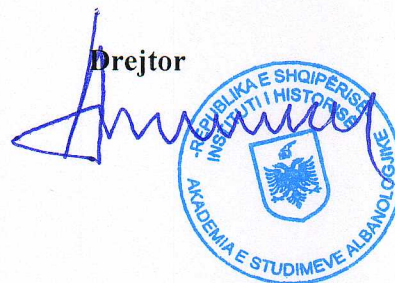 Drejtor
-REPUBLIKA E SHQIPËRISË-
INSTITUTI I HISTORISË
AKADEMIA E STUDIMEVE ALBANOLOGJIKE